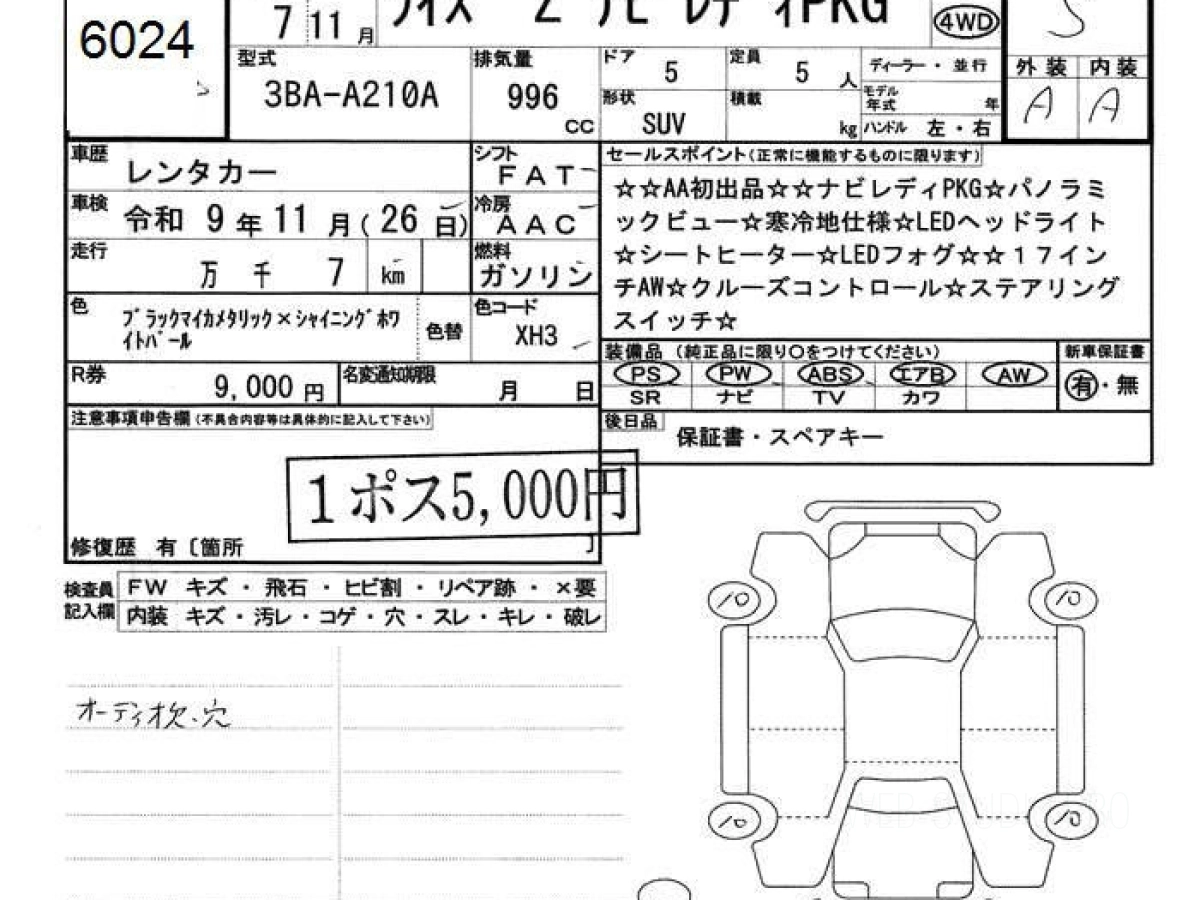 6024
7 11 月
ライズ Z ナビ レディPKG
4WD
S
型式
3BA-A210A
排気量
996
cc
ドア
5
定員
5 人
形状
SUV
積載
kg
ディーラー・並行
モデル年式 年
ハンドル 左・右
外装 内装
A A
車歴
レンタカー
シフト
FAT
車検
令和 9 年 11 月 ( 26 日)
冷房
AAC
走行
万 千 7 km
燃料
ガソリン
色
ブラックマイカメタリック×シャイニングホワ
イトパール
色替
色コード
XH3
R券
9,000 円
名変通知期限
月 日
注意事項申告欄(不具合内容等は具体的に記入して下さい)
1ポス5,000円
修復歴 有〔箇所 〕
セールスポイント(正常に機能するものに限ります)
☆☆AA初出品☆☆ナビレディPKG☆パノラミ
ックビュー☆寒冷地仕様☆LEDヘッドライト
☆シートヒーター☆LEDフォグ☆☆17イン
チAW☆クルーズコントロール☆ステアリング
スイッチ☆
装備品 (純正品に限り○をつけてください)
PS PW ABS エアB AW
SR ナビ TV カワ
新車保証書
有・無
後日品
保証書・スペアキー
検査員
記入欄
FW キズ・飛石・ヒビ割・リペア跡・×要
内装 キズ・汚レ・コゲ・穴・スレ・キレ・破レ
オーディオ欠・穴
10 10
10 10